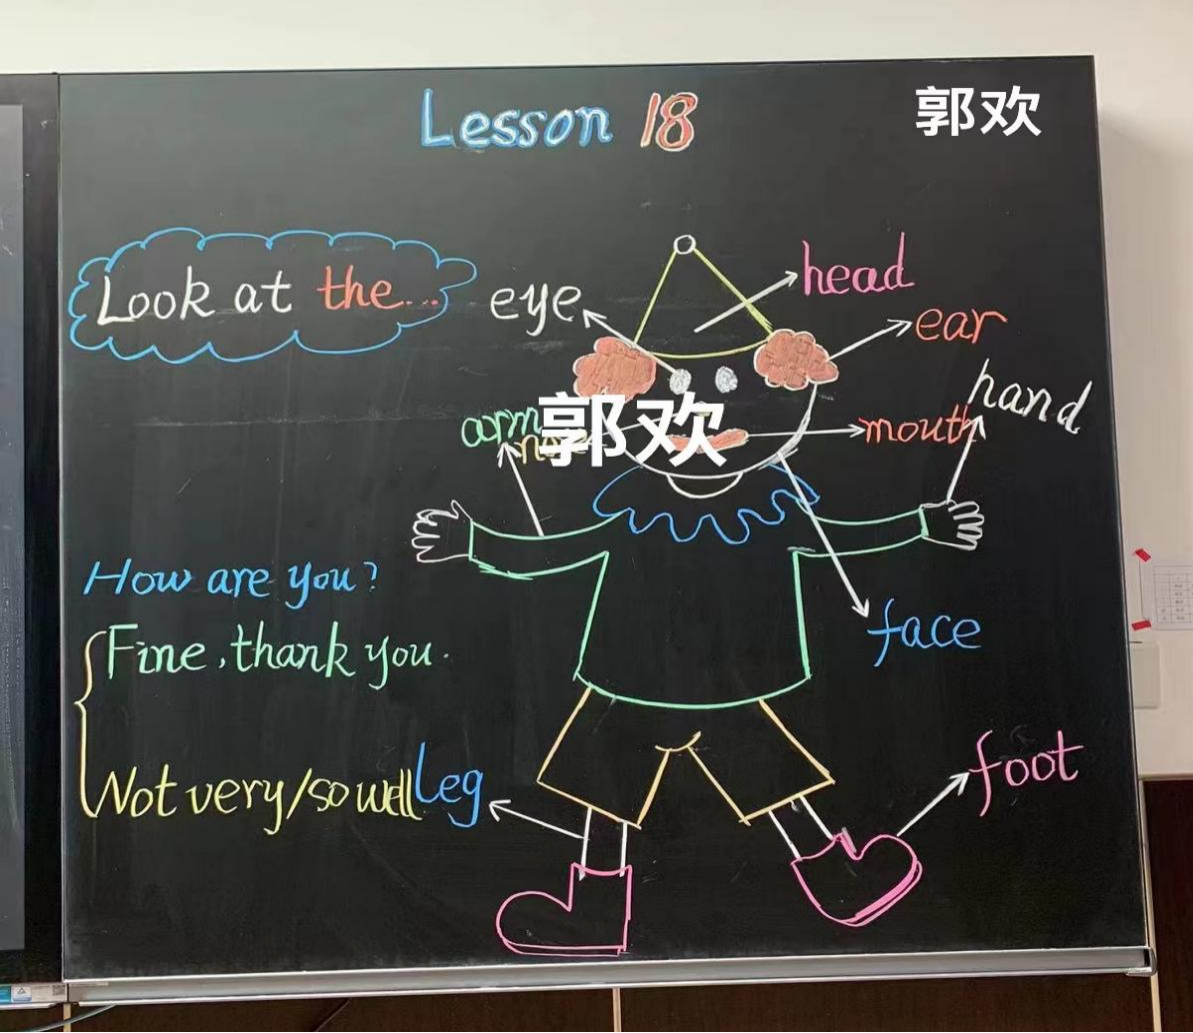 Lesson 18
郭欢
Look at the...
eye
head
ear
hand
arm
郭欢
mouth
How are you?
face
Fine, thank you.
foot
Not very/so well
Leg